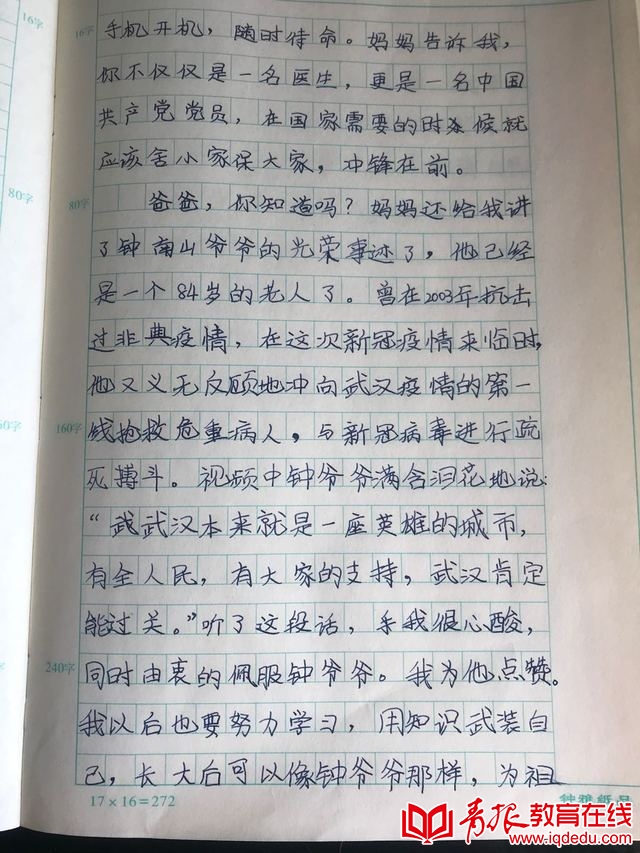 16字
16字
手机开机，随时待命。妈妈告诉我，
你不仅仅是一名医生，更是一名中国
共产党党员，在国家需要的时候就
应该舍小家保大家，冲锋在前。
80字
80字
爸爸，你知道吗？妈妈还给我讲
了钟南山爷爷的光荣事迹了，他已经
是一个84岁的老人了。曾在2003年抗击
过非典疫情，在这次新冠疫情来临时，
他又义无反顾地冲向武汉疫情的第一
160字
线抢救危重病人，与新冠病毒进行
死搏斗。视频中钟爷爷满含泪花地说：
“武汉本来就是一座英雄的城市，
有全人民，有大家的支持，武汉肯定
能过关。”听了这段话，我很心酸，
240字
同时由衷的佩服钟爷爷。我为他点赞。
我以后也要努力学习，用知识武装自
己，长大后可以像钟爷爷那样，为祖
17×16=272
青报教育在线
www.iqdedu.com